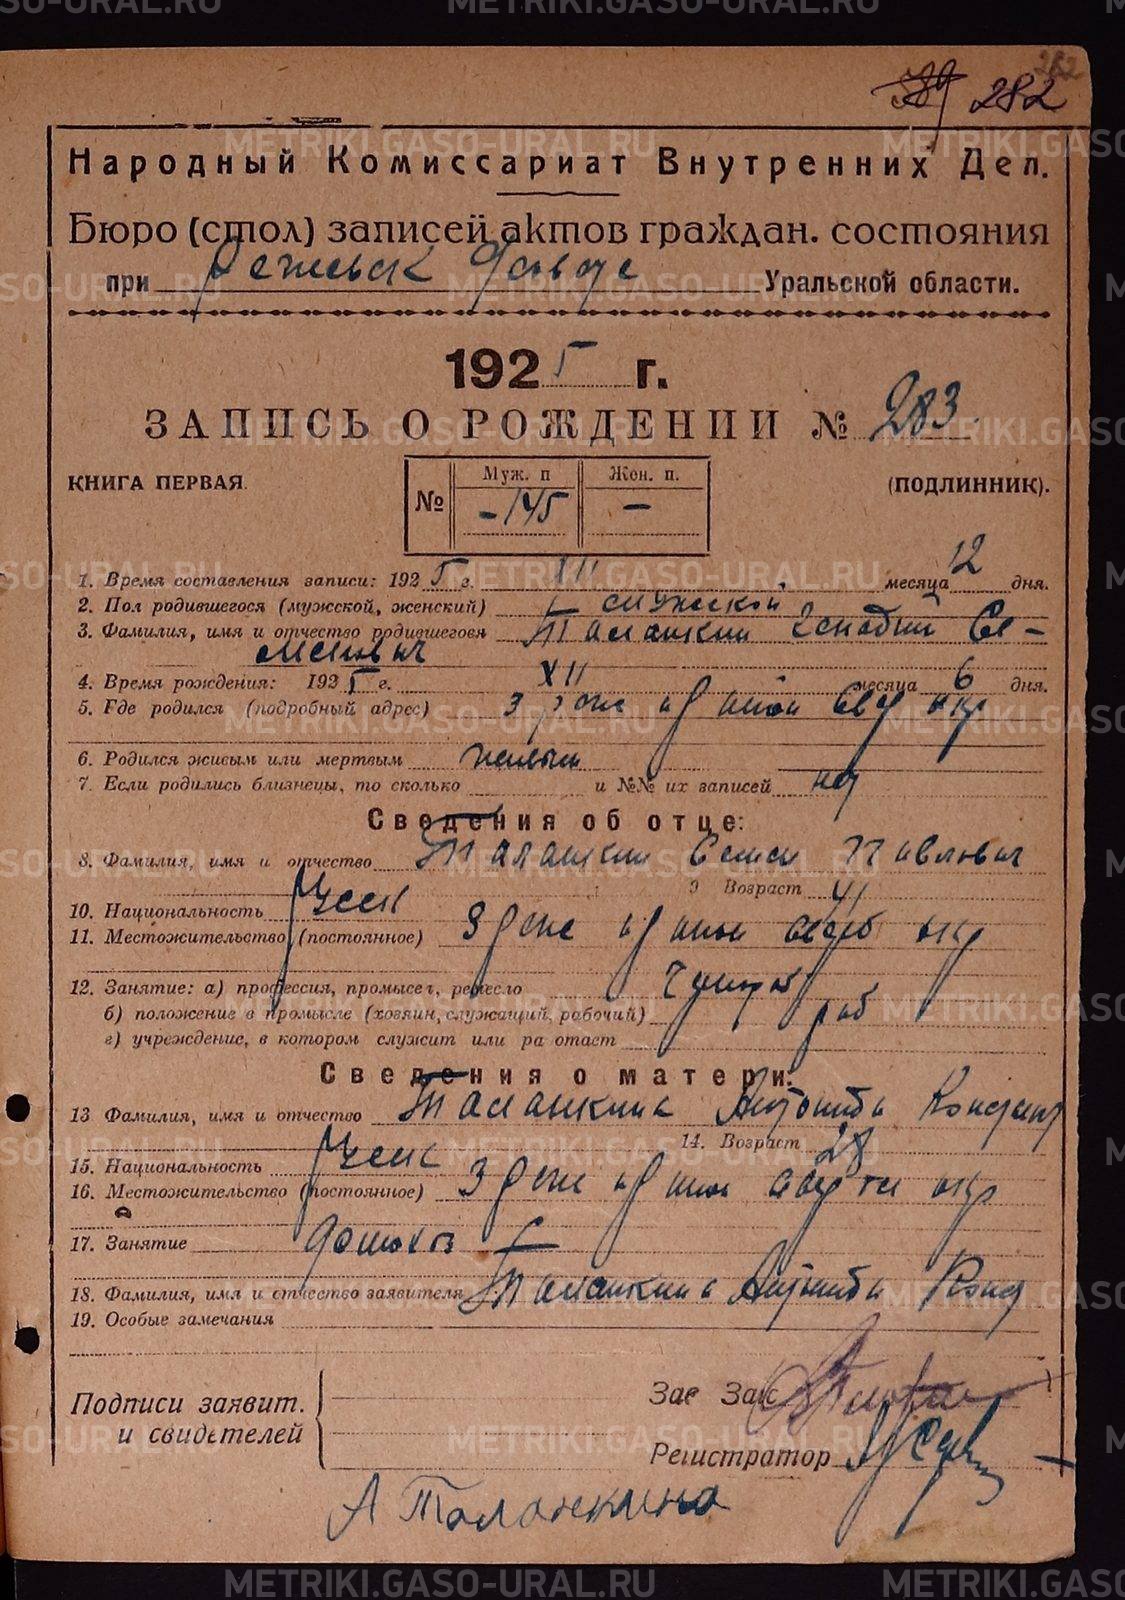 282
282
Народный Комиссариат Внутренних Дел.
Бюро (стол) записей актов граждан. состояния
при Режевск Заводе Уральской области.
1925 г.
ЗАПИСЬ О РОЖДЕНИИ № 283
КНИГА ПЕРВАЯ. (ПОДЛИННИК).
№ Муж. п Жен. п.
-145 —
1. Время составления записи: 1925 г. XII месяца 12 дня.
2. Пол родившегося (мужской, женский) мужской
3. Фамилия, имя и отчество родившегося Талашкин Генадий Се-
менович
4. Время рождения: 1925 г. XII месяца 6 дня.
5. Где родился (подробный адрес)
6. Родился живым или мертвым живым
7. Если родились близнецы, то сколько и №№ их записей нет
Сведения об отце:
8. Фамилия, имя и отчество Талашкин Семен Павлович
9 Возраст 41
10. Национальность Русск
11. Местожительство (постоянное) окр
12. Занятие: а) профессия, промысел, ремесло
б) положение в промысле (хозяин, служащий, рабочий) раб
г) учреждение, в котором служит или ра отает
Сведения о матери:
13 Фамилия, имя и отчество Талашкина Антонида Констант
14. Возраст 28
15. Национальность Русск
16. Местожительство (постоянное) окр
17. Занятие домохоз
18. Фамилия, имя и отчество заявителя Талашкина Антонида Конст
19. Особые замечания
Подписи заявит. и свидетелей
Зав Заг
Регистратор
А Таланкина
METRIKI.GASO-URAL.RU